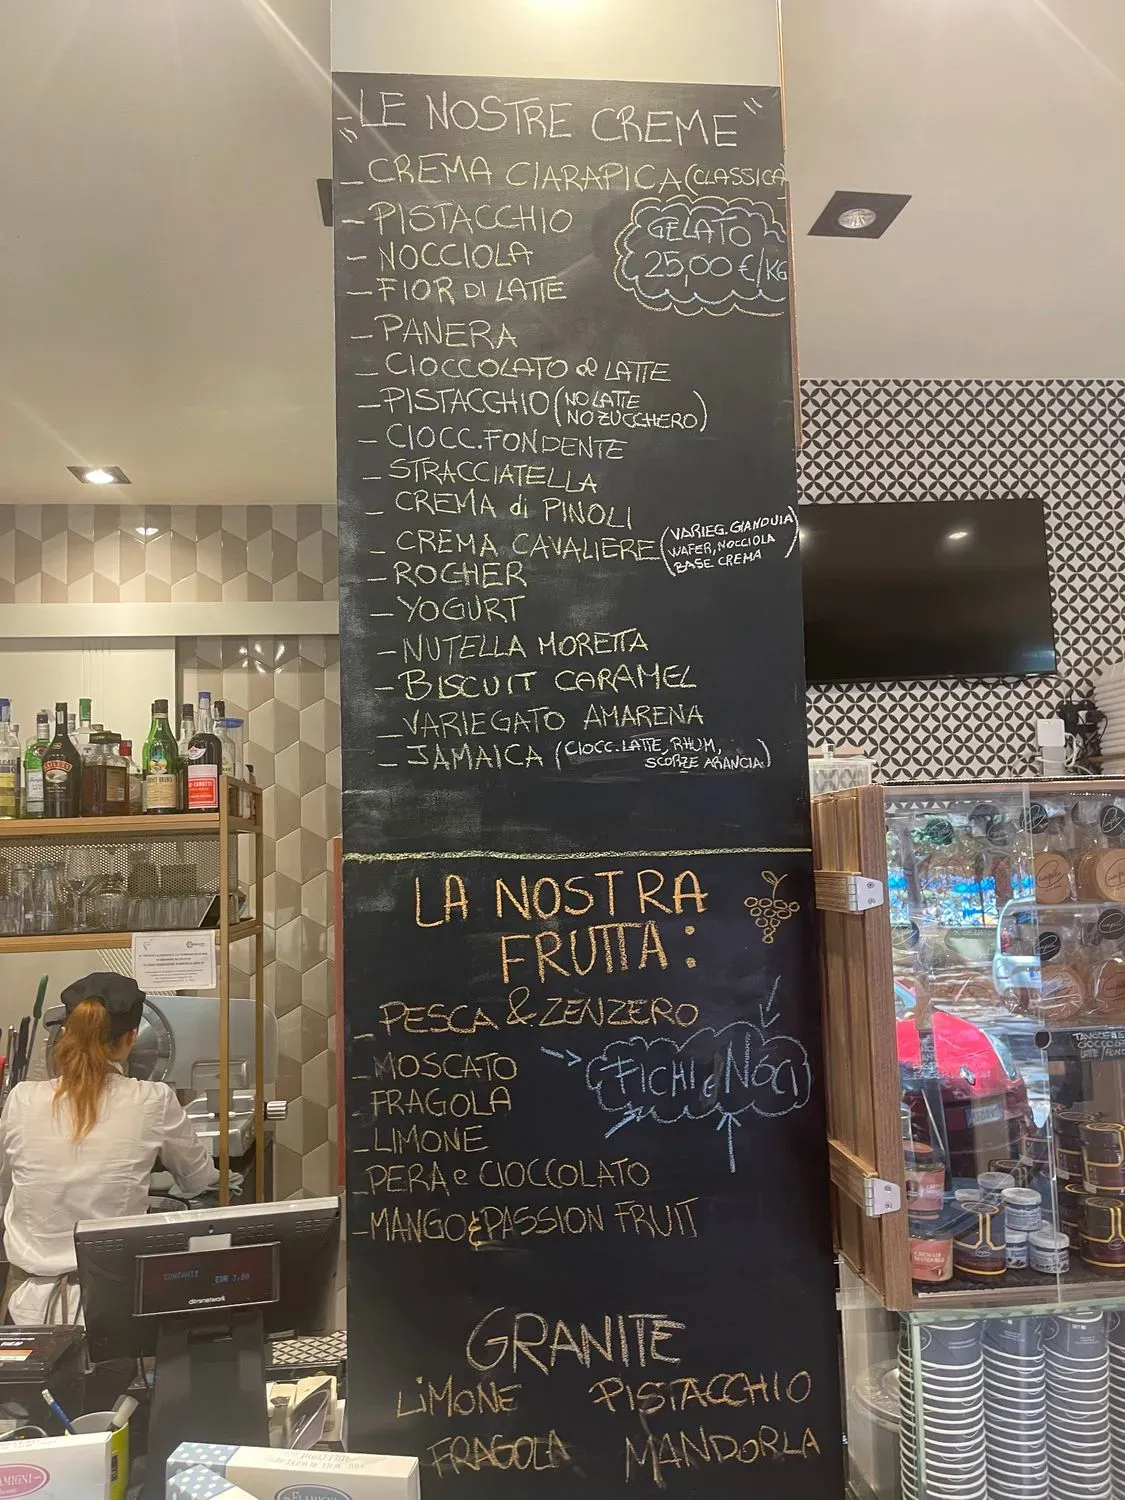 "LE NOSTRE CREME"
- CREMA CIARAPICA (CLASSICA
- PISTACCHIO
GELATO
25,00 €/KG
- NOCCIOLA
- FIOR DI LATTE
- PANERA
- CIOCCOLATO al LATTE
- PISTACCHIO (NO LATTE
NO ZUCCHERO)
- CIOCC. FONDENTE
- STRACCIATELLA
- CREMA di PINOLI
- CREMA CAVALIERE (VARIEG. GIANDUIA
WAFER, NOCCIOLA
BASE CREMA)
- ROCHER
- YOGURT
- NUTELLA MORETTA
- BISCUIT CARAMEL
- VARIEGATO AMARENA
- JAMAICA (CIOCC. LATTE, RHUM,
SCORZE ARANCIA)
LA NOSTRA
FRUTTA:
- PESCA & ZENZERO
- MOSCATO
FICHI e NOCI
- FRAGOLA
- LIMONE
- PERA e CIOCCOLATO
- MANGO & PASSION FRUIT
GRANITE
LIMONE PISTACCHIO
FRAGOLA MANDORLA
BAILEYS
CONTANTI EUR 3,80
ditronetwork
FLAMIGNI